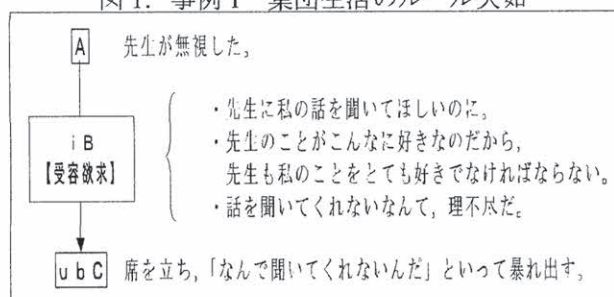 図1. 事例1 集団生活のルール欠如
A 先生が無視した。
iB
【受容欲求】
・先生に私の話を聞いてほしいのに。
・先生のことがこんなに好きなのだから，
先生も私のことをとても好きでなければならない。
・話を聞いてくれないなんて，理不尽だ。
ubC 席を立ち，「なんで聞いてくれないんだ」といって暴れ出す。